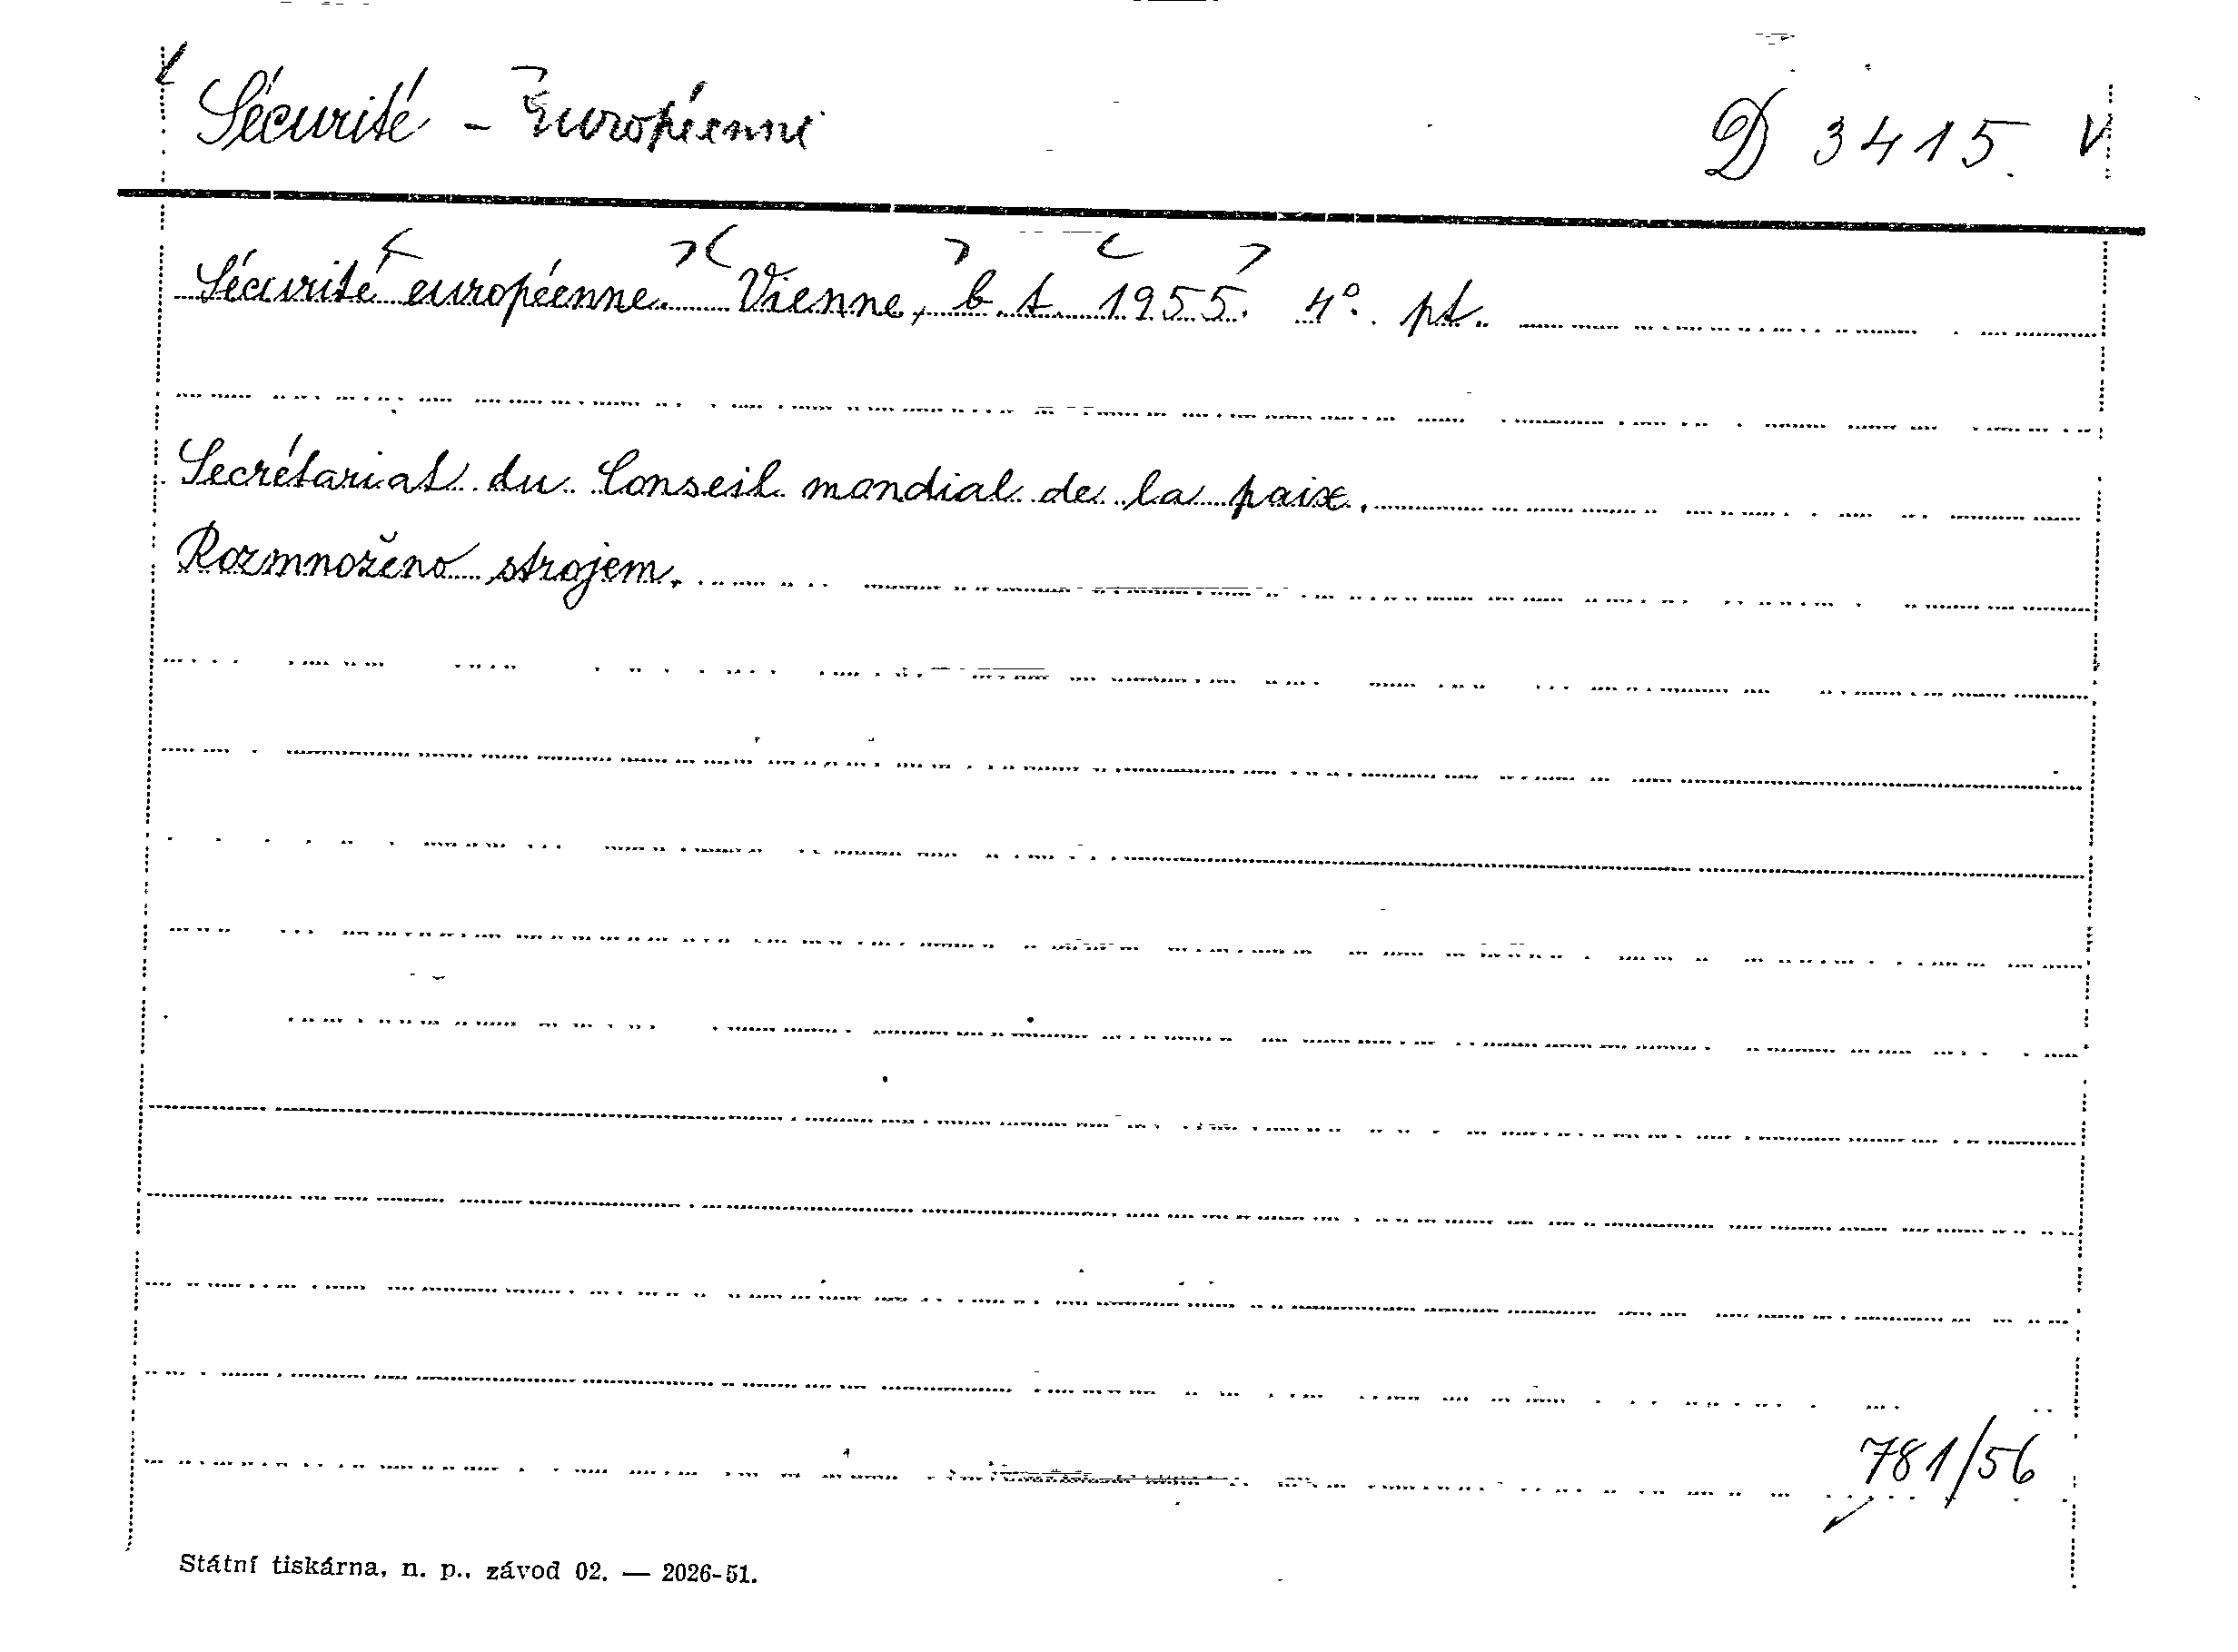 Sécurité - Européenne D 3415.
Sécurité européenne. Vienne, b. t. 1955. 4°. pt.
Secrétariat du Conseil mondial de la paix.
Rozmnoženo strojem.
781/56
Státní tiskárna, n. p., závod 02. — 2026-51.